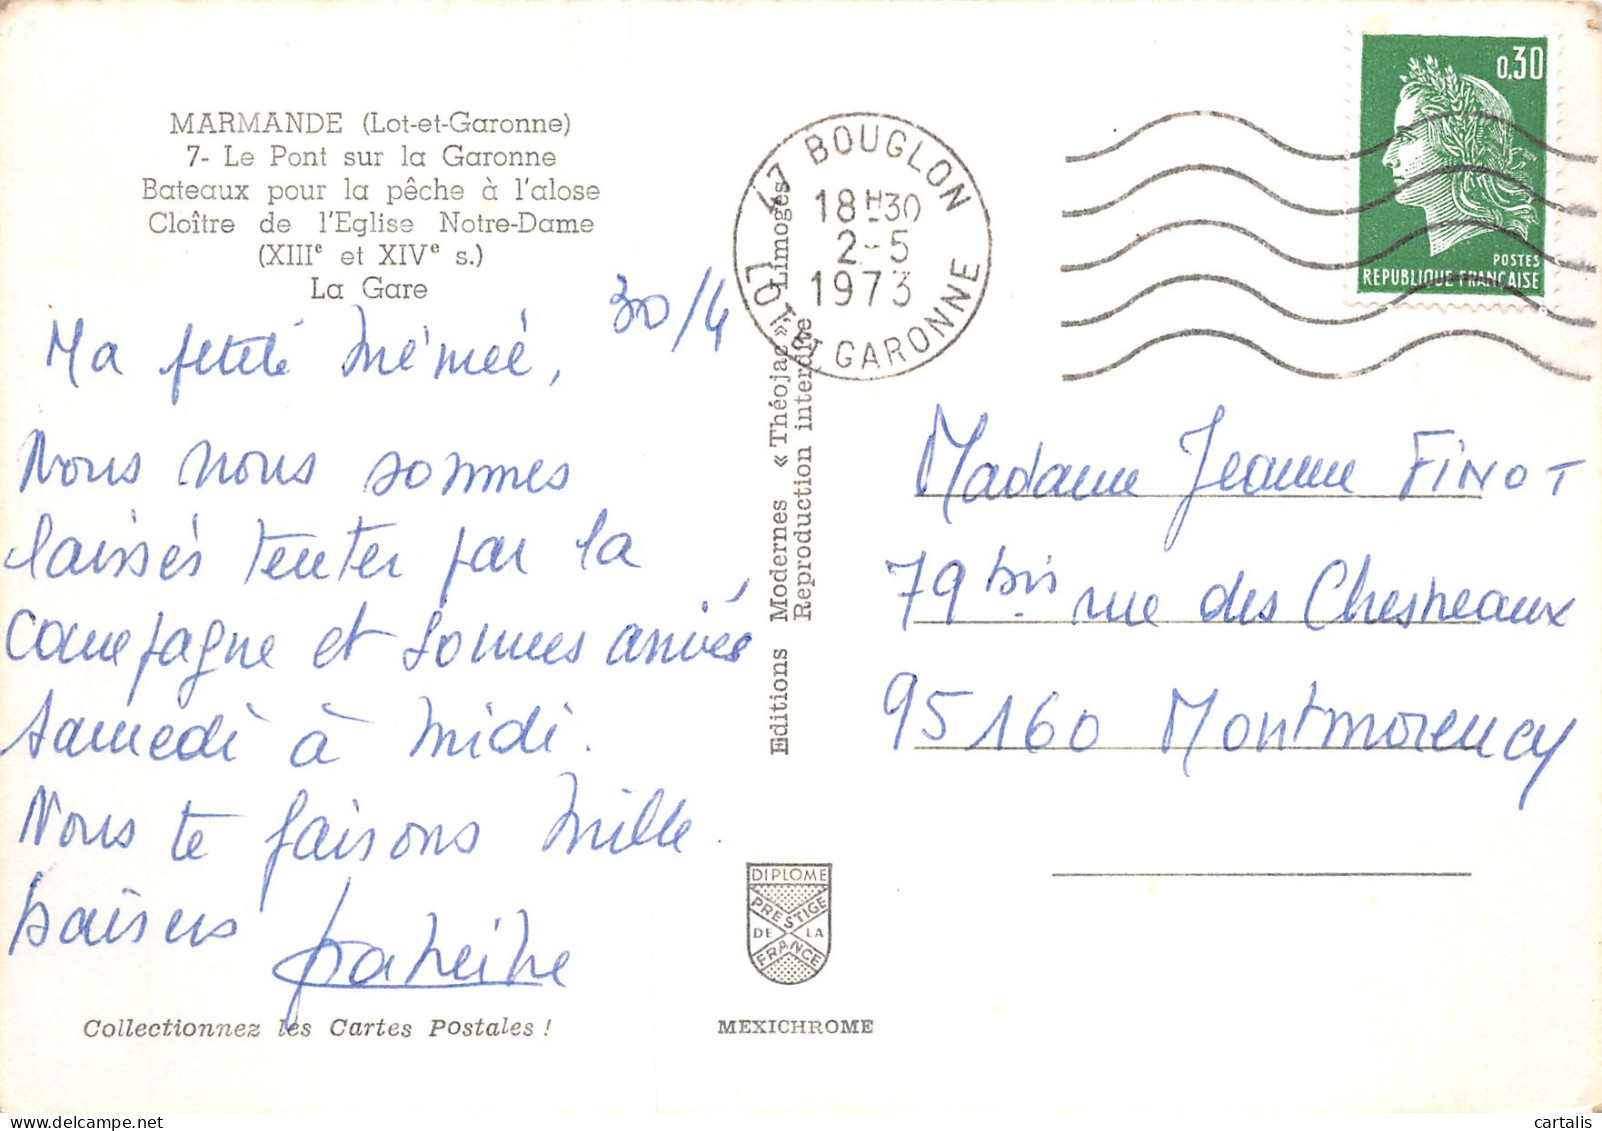 MARMANDE (Lot-et-Garonne)
7- Le Pont sur la Garonne
Bateaux pour la pêche à l'alose
Cloître de l'Eglise Notre-Dame
(XIIIe et XIVe s.)
La Gare
30/4
Ma petite Mémée,
Nous nous sommes
laissés tenter par la
campagne et sommes arrivés
samedi à midi.
Nous te faisons mille
baisers
Collectionnez les Cartes Postales !
Editions Modernes « Théojac » Limoges
Reproduction interdite
DIPLOME
PRESTIGE
DE LA
FRANCE
MEXICHROME
47 BOUGLON
18H30
2-5
1973
LOT-ET-GARONNE
0,30
POSTES
REPUBLIQUE FRANÇAISE
Madame Jeanne FINOT
79 bis rue des Chesneaux
95160 Montmorency
cartalis